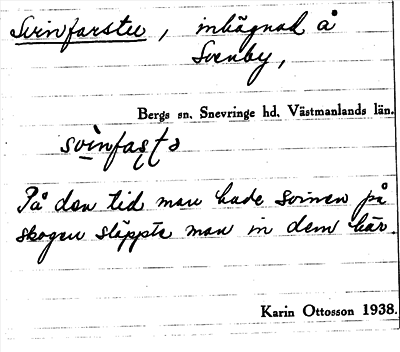 Svinfarsten, inhägnad å
Svenby,
Bergs sn. Snevringe hd. Västmanlands län.
På den tid man hade svinen på
skogen släppte man in dem här.
Karin Ottosson 1938.